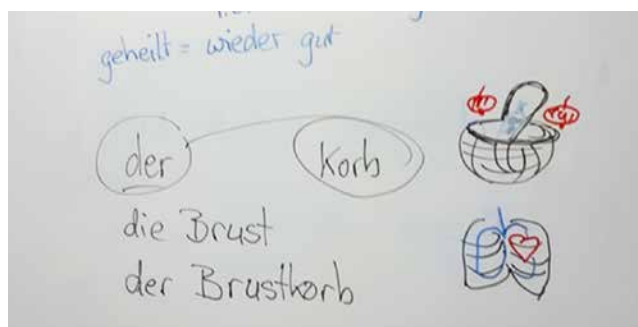 geheilt = wieder gut
der Korb
die Brust
der Brustkorb